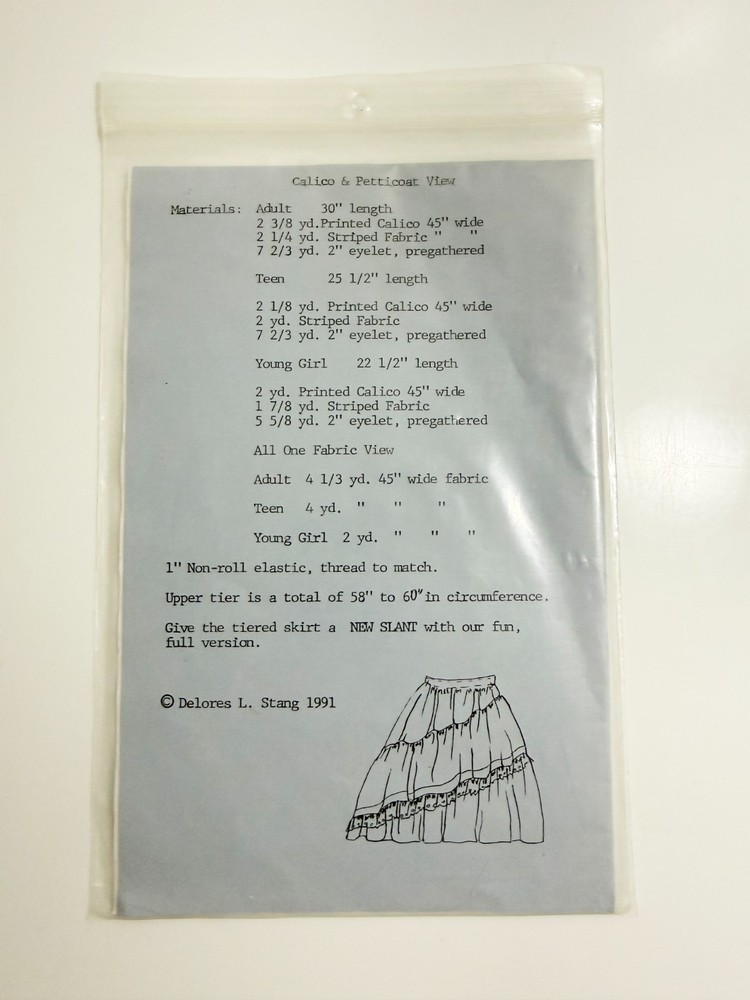 Calico & Petticoat View
Materials: Adult 30" length
2 3/8 yd.Printed Calico 45" wide
2 1/4 yd. Striped Fabric " "
7 2/3 yd. 2" eyelet, pregathered
Teen 25 1/2" length
2 1/8 yd. Printed Calico 45" wide
2 yd. Striped Fabric
7 2/3 yd. 2" eyelet, pregathered
Young Girl 22 1/2" length
2 yd. Printed Calico 45" wide
1 7/8 yd. Striped Fabric
5 5/8 yd. 2" eyelet, pregathered
All One Fabric View
Adult 4 1/3 yd. 45" wide fabric
Teen 4 yd. " " "
Young Girl 2 yd. " " "
1" Non-roll elastic, thread to match.
Upper tier is a total of 58" to 60" in circumference.
Give the tiered skirt a NEW SLANT with our fun,
full version.
© Delores L. Stang 1991